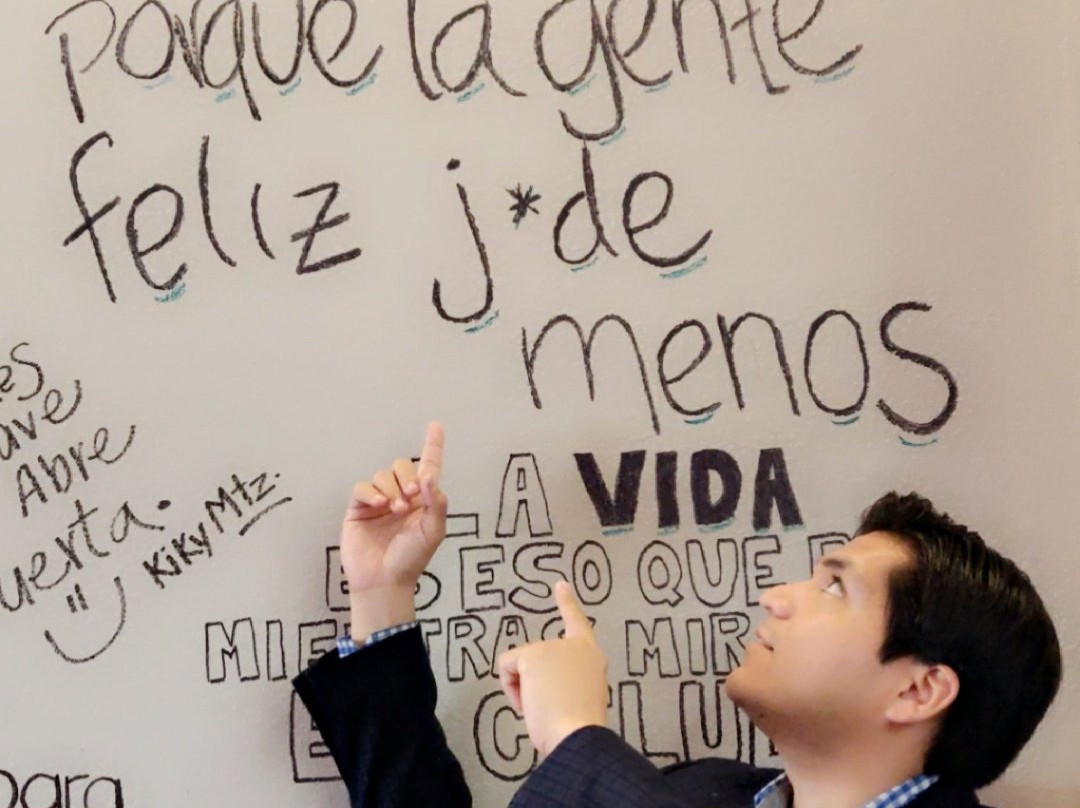 porque la gente
feliz j*de
menos
es
ave
Abre
uerta.
Kiky Mtz.
LA VIDA
ES ESO QUE P
MIENTRAS MIR
E CELU
para